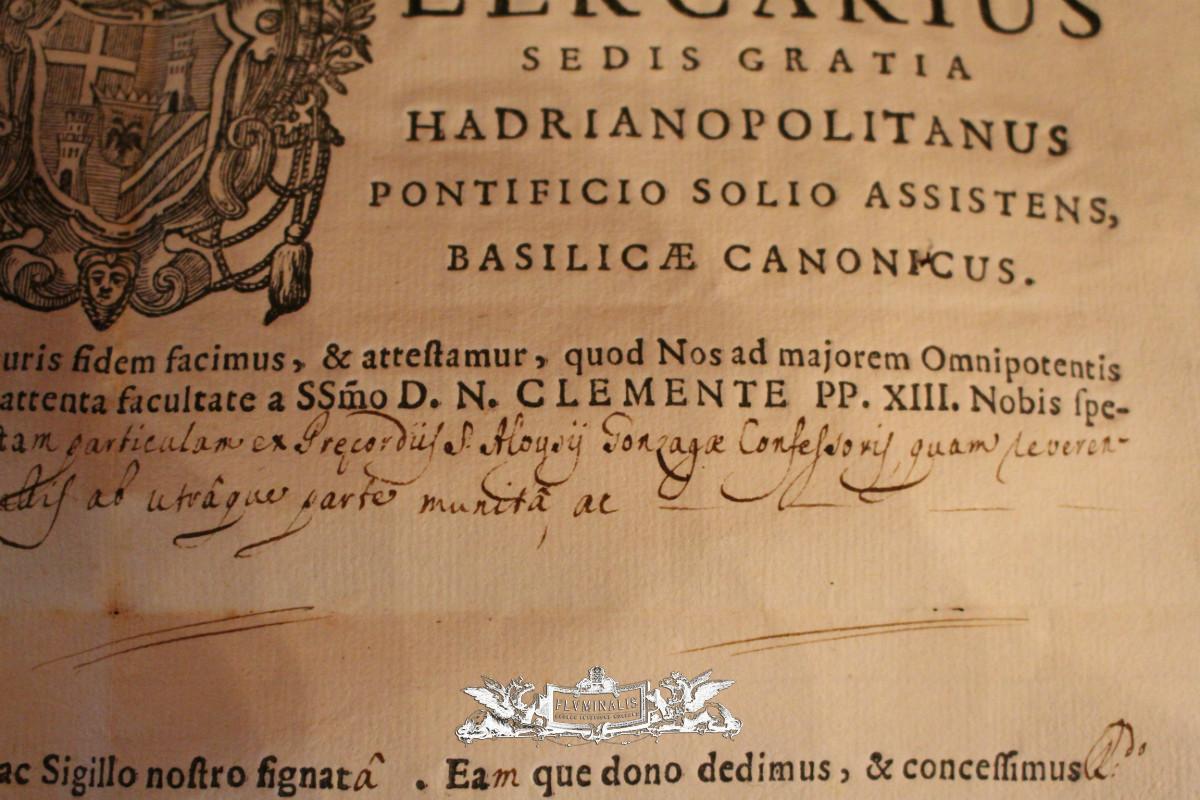 LERCARIUS
SEDIS GRATIA
HADRIANOPOLITANUS
PONTIFICIO SOLIO ASSISTENS,
BASILICÆ CANONICUS.
uris fidem facimus, & attestamur, quod Nos ad majorem Omnipotentis
attenta facultate a SSm̃o D. N. CLEMENTE PP. XIII. Nobis spe-
tam particulam ex Pręcordiis S. Aloysij Gonzagæ Confessoris, quam reveren-
ab utrâque parte munitâ ac
FLVMINALIS
ac Sigillo nostro signatâ . Eam que dono dedimus, & concessimus